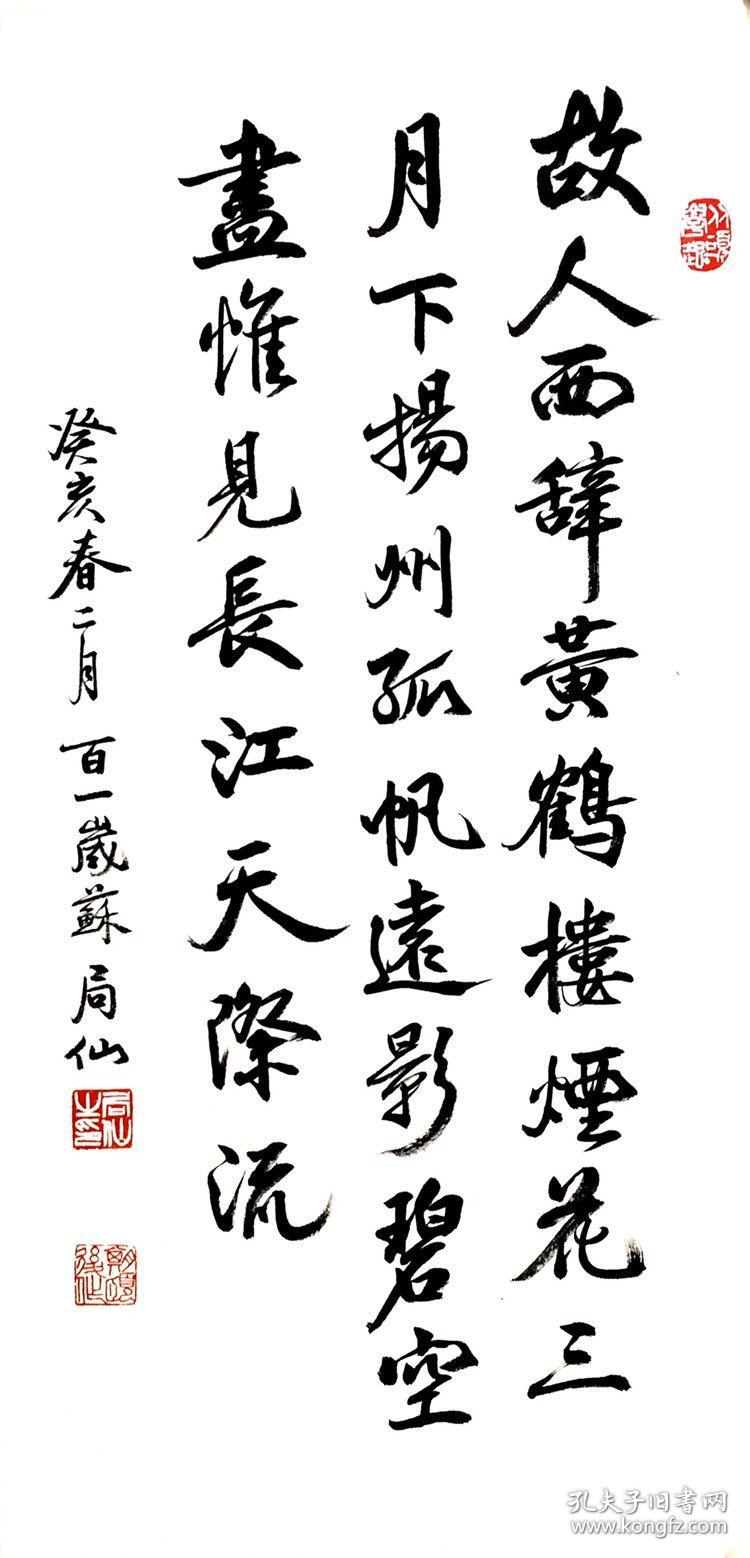 故人西辭黃鶴樓煙花三
月下揚州孤帆遠影碧空
盡惟見長江天際流
癸亥春二月 百一歲蘇局仙
局仙之印
孔夫子旧书网
www.kongfz.com